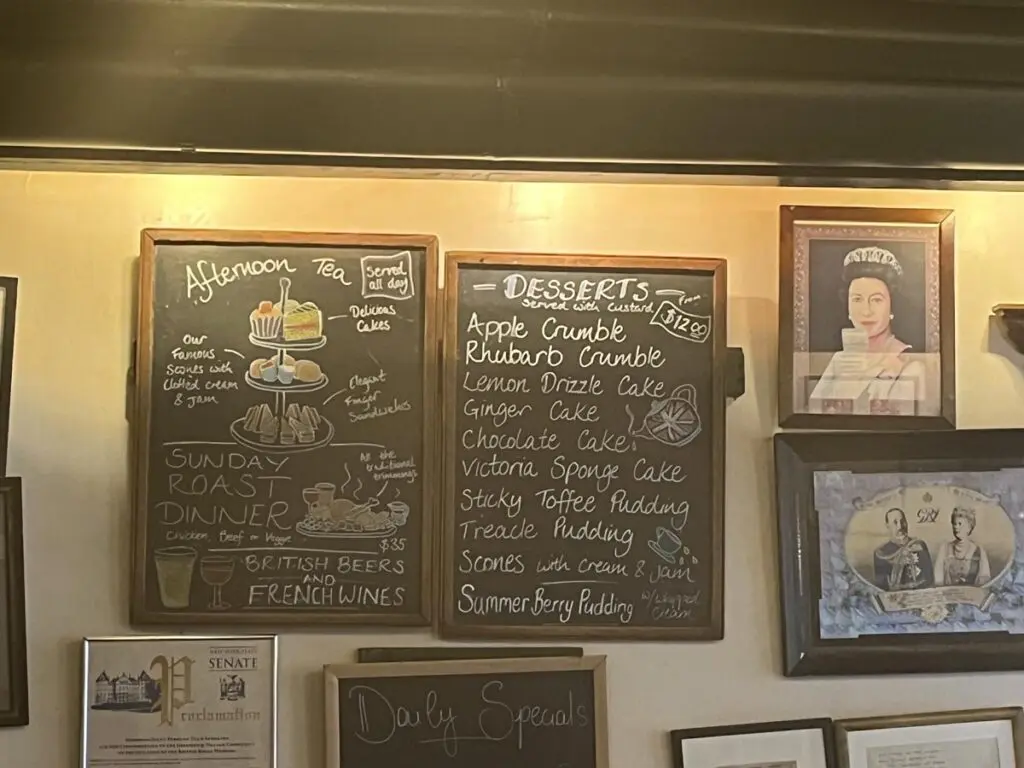 Afternoon Tea
Served all day
Delicious Cakes
Our
Famous
Scones with
Clotted cream
& Jam
Elegant
Finger
Sandwiches
SUNDAY
ROAST
DINNER
All the
traditional
trimmings
Chicken, Beef or Veggie
$35
BRITISH BEERS
AND
FRENCH WINES
DESSERTS
Served with Custard
From
$12.00
Apple Crumble
Rhubarb Crumble
Lemon Drizzle Cake
Ginger Cake
Chocolate Cake
Victoria Sponge Cake
Sticky Toffee Pudding
Treacle Pudding
Scones with cream & Jam
Summer Berry Pudding
w/ Whipped
Cream
NEW YORK STATE
SENATE
Proclamation
Daily Specials